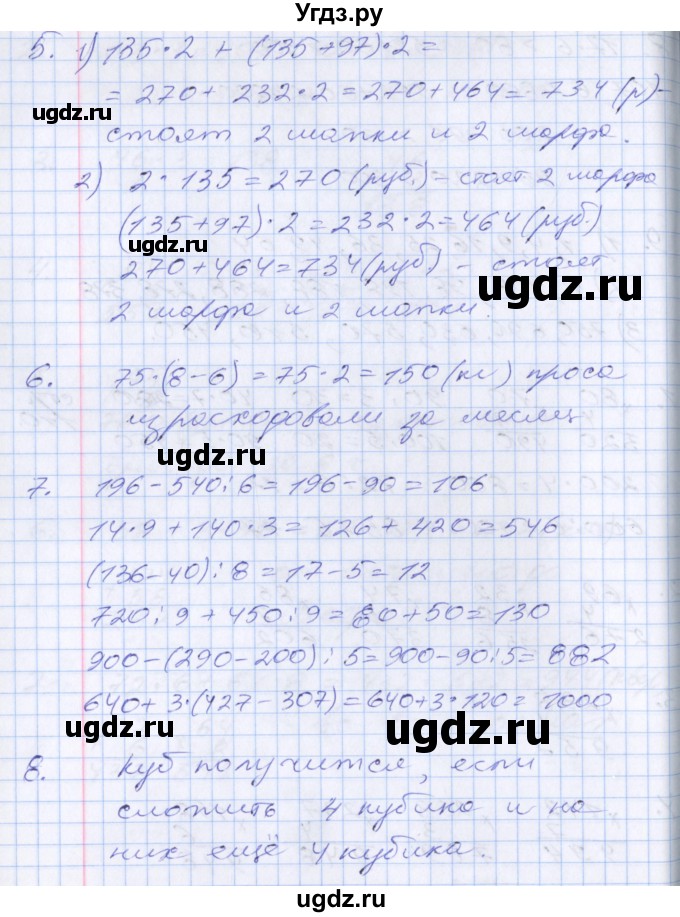 Угдз.ру
5. 1) 135·2 + (135+97)·2 =
= 270 + 232·2 = 270 + 464 = 734 (р) -
стоят 2 шапки и 2 шарфа.
2) 2·135 = 270 (руб.) - стоят 2 шарфа
(135+97)·2 = 232·2 = 464 (руб.)
270 + 464 = 734 (руб) - стоят
2 шарфа и 2 шапки.
6. 75·(8-6) = 75·2 = 150 (кг) проса
израсходовали за месяц
7. 196 - 540:6 = 196 - 90 = 106
14·9 + 140·3 = 126 + 420 = 546
(136-40):8 = 17-5 = 12
720:9 + 450:9 = 80+50 = 130
900-(290-200):5 = 900-90:5 = 882
640+3·(427-307) = 640+3·120 = 1000
8. Куб получится, если
сложить 4 кубика и на
них ещё 4 кубика.
ugdz.ru
ugdz.ru
ugdz.ru
ugdz.ru
ugdz.ru
ugdz.ru
ugdz.ru
ugdz.ru
ugdz.ru
ugdz.ru
ugdz.ru